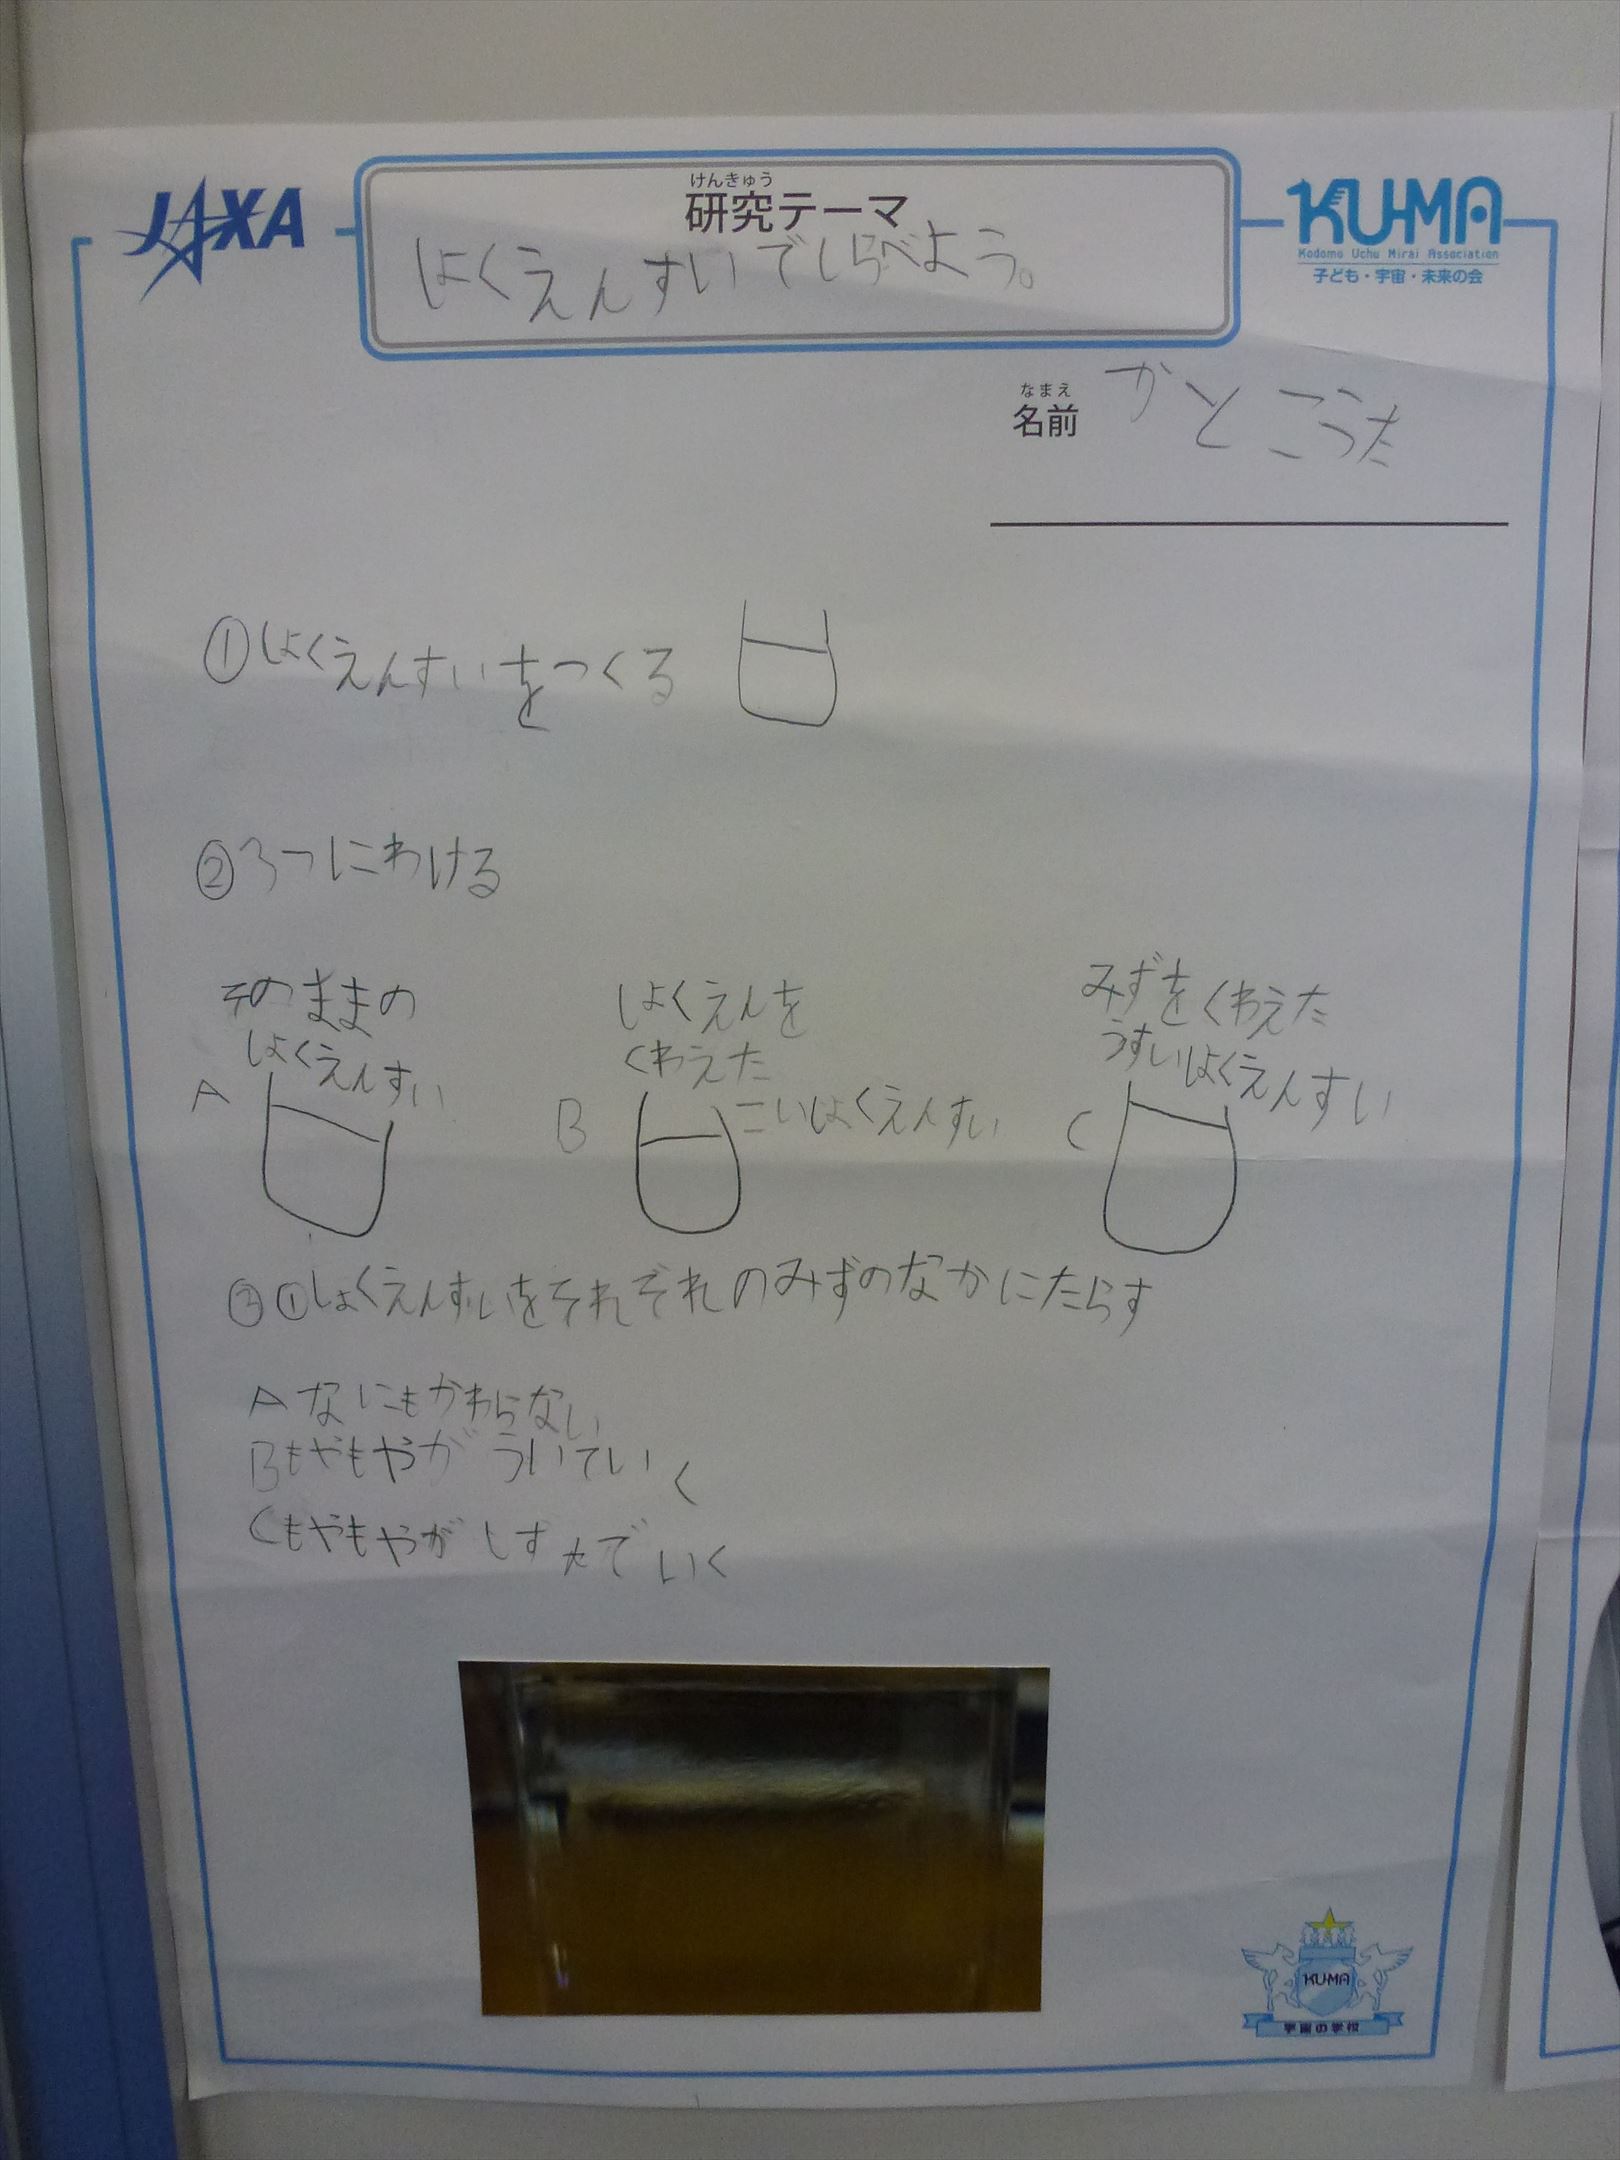 JAXA
けんきゅう
研究テーマ
しょくえんすいでしらべよう。
KU-MA
Kodomo Uchu Mirai Association
子ども・宇宙・未来の会
なまえ
名前 かとこうた
①しょくえんすいをつくる
②3つにわける
そのままの
しょくえんすい
A
しょくえんを
くわえた
B こいしょくえんすい
みずをくわえた
うすいしょくえんすい
C
③①しょくえんすいをそれぞれのみずのなかにたらす
Aなにもかわらない
Bもやもやがういていく
Cもやもやがしずんでいく
KU-MA
宇宙の学校